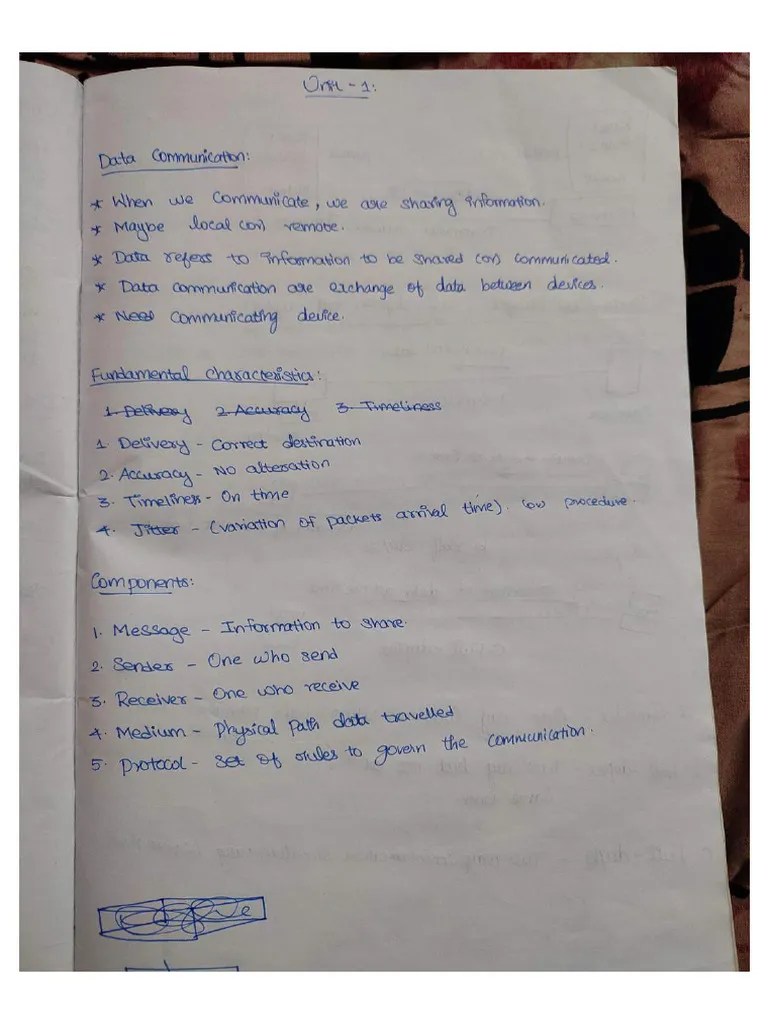 Unit - 1:
Data Communication:
* When we communicate, we are sharing information.
* Maybe local (or) remote.
* Data refers to information to be shared (or) communicated.
* Data communication are exchange of data between devices.
* Need communicating device.
Fundamental characteristics:
1. Delivery 2. Accuracy 3. Timeliness
1. Delivery - Correct destination
2. Accuracy - No alteration
3. Timeliness - On time
4. Jitter - (variation of packets arrival time). (or) procedure.
Components:
1. Message - Information to share.
2. Sender - One who send
3. Receiver - One who receive
4. Medium - Physical path data travelled
5. Protocol - set of rules to govern the communication.